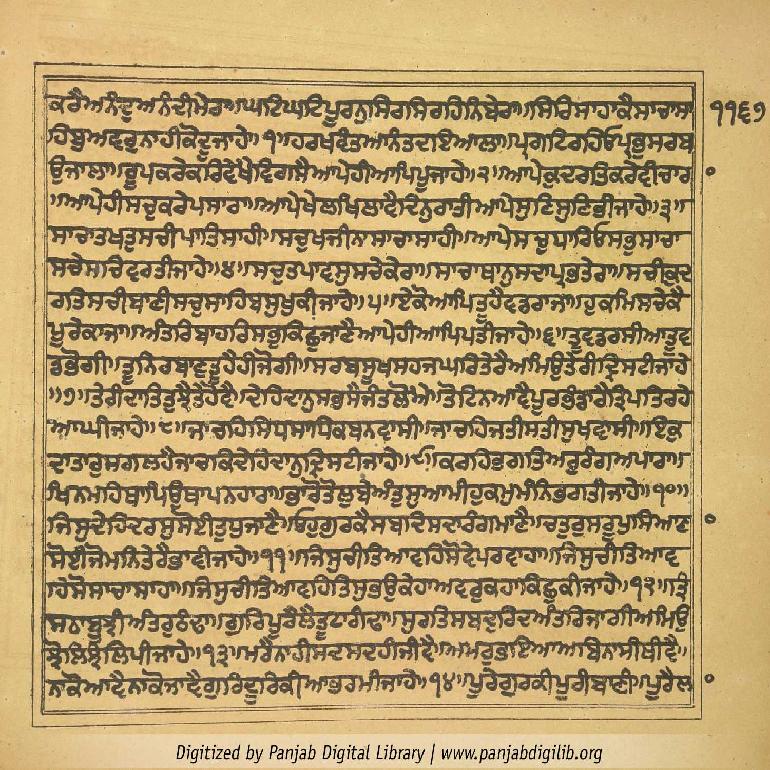 ਕਰੈਅਨੰਦੁਅਨੰਦੀਮੇਰਾ॥ਘਟਿਘਟਿਪੂਰਨੁਸਿਰਸਿਰਹਿਨਿਬੇਰਾ॥ਸਿਰਿਸਾਹਾਕੈਸਾਚਾਸਾ ੧੧੬੭
ਹਿਬੁਅਵਰੁਨਾਹੀਕੋਦੂਜਾਹੇ॥੧॥ਹਰਖਵੰਤਆਨੰਤਦਇਆਲਾ॥ਪ੍ਰਗਟਿਰਹਿਓਪ੍ਰਭੁਸਰਬ
ਉਜਾਲਾ॥ਰੂਪਕਰੇਕਰਿਵੇਖੈਵਿਗਸੈਆਪੇਹੀਆਪਿਪੂਜਾਹੇ॥੨॥ਆਪੇਕੁਦਰਤਿਕਰੇਵੀਚਾਰਾ
॥ਆਪੇਹੀਸਚੁਕਰੇਪਸਾਰਾ॥ਆਪੇਖੇਲਖਿਲਾਵੈਦਿਨੁਰਾਤੀਆਪੇਸੁਣਿਸੁਣਿਭੀਜਾਹੇ॥੩॥
ਸਾਚਾਤਖਤੁਸਚੀਪਾਤਿਸਾਹੀ॥ਸਚੁਖਜੀਨਾਸਾਚਾਸਾਹੀ॥ਆਪੇਸਚੁਧਾਰਿਓਸਭੁਸਾਚਾ
ਸਚੇਸਚਿਵਰਤੀਜਾਹੇ॥੪॥ਸਚੁਤਪਾਵਸੁਸਚੇਕੇਰਾ॥ਸਾਚਾਥਾਨੁਸਦਾਪ੍ਰਭਤੇਰਾ॥ਸਚੀਕੁਦ
ਰਤਿਸਚੀਬਾਣੀਸਚੁਸਾਹਿਬਸੁਖੁਕੀਜਾਹੇ॥੫॥ਏਕੋਆਪਿਤੂਹੈਵਡਰਾਜਾ॥ਹੁਕਮਿਸਚੇਕੈ
ਪੂਰੇਕਾਜਾ॥ਅੰਤਰਿਬਾਹਰਿਸਭੁਕਿਛੁਜਾਣੈਆਪੇਹੀਆਪਿਪਤੀਜਾਹੇ॥੬॥ਤੂਵਡਰਸੀਆਤੂਵ
ਡਭੋਗੀ॥ਤੂਨਿਰਬਾਣੁਤੂਹੈਹੀਜੋਗੀ॥ਸਰਬਸੂਖਸਹਜਘਰਿਤੇਰੈਅਮਿਉਤੇਰੀਦ੍ਰਿਸਟੀਜਾਹੇ
॥੭॥ਤੇਰੀਦਾਤਿਤੁਝੈਤੇਹੋਵੈ॥ਦੇਹਿਦਾਨੁਸਭਸੈਜੰਤਲੋਐ॥ਤੋਟਿਨਆਵੈਪੂਰਭੰਡਾਰੈਤ੍ਰਿਪਤਿਰਹੇ
ਆਘੀਜਾਹੇ॥੮॥ਜਾਚਹਿਸਿਧਸਾਧਿਕਬਨਵਾਸੀ॥ਜਾਚਹਿਜਤੀਸਤੀਸੁਖਵਾਸੀ॥ਇਕੁ
ਦਾਤਾਰੁਸਗਲਹੈਜਾਚਿਕਦੇਹਿਦਾਨੁਦ੍ਰਿਸਟੀਜਾਹੇ॥੯॥ਕਰਹਿਭਗਤਿਅਰੁਰੰਗਅਪਾਰਾ॥
ਖਿਨਮਹਿਥਾਪਿਉਥਾਪਨਹਾਰਾ॥ਭਾਰੋਤੋਲੁਬੇਅੰਤੁਸੁਆਮੀਹੁਕਮੁਮੰਨਿਭਗਤੀਜਾਹੇ॥੧੦॥
ਜਿਸੁਦੇਹਿਦਰਸੁਸੋਈਤੁਧੁਜਾਣੈ॥ਓਹੁਗੁਰਕੈਸਬਦਿਸਦਾਰੰਗਮਾਣੈ॥ਚਤੁਰੁਸਰੂਪੁਸਿਆਣਾ
ਸੋਈਜੋਮਨਿਤੇਰੈਭਾਵੀਜਾਹੇ॥੧੧॥ਜਿਸੁਚੀਤਿਆਵਹਿਸੋਵੇਪਰਵਾਹਾ॥ਜਿਸੁਚੀਤਿਆਵ
ਹਿਸੋਸਾਚਾਸਾਹਾ॥ਜਿਸੁਚੀਤਿਆਵਹਿਤਿਸੁਭਉਕੇਹਾਅਵਰੁਕਹਾਕਿਛੁਕੀਜਾਹੇ॥੧੨॥ਤ੍ਰਿ
ਸਨਾਬੂਝੀਅੰਤਰੁਠੰਢਾ॥ਗੁਰਿਪੂਰੈਲੈਤੂਟਾਗੰਢਾ॥ਸੁਰਤਿਸਬਦੁਰਿਦਅੰਤਰਿਜਾਗੀਅਮਿਉ
ਝੋਲਿਝੋਲਿਪੀਜਾਹੇ॥੧੩॥ਮਰੈਨਾਹੀਸਦਸਦਹੀਜੀਵੈ॥ਅਮਰੁਭਇਆਅਬਿਨਾਸੀਥੀਵੈ॥
ਨਾਕੋਆਵੈਨਾਕੋਜਾਵੈਗੁਰਿਦੂਰਿਕੀਆਭਰਮੀਜਾਹੇ॥੧੪॥ਪੂਰੇਗੁਰਕੀਪੂਰੀਬਾਣੀ॥ਪੂਰੈਲਾ
Digitized by Panjab Digital Library | www.panjabdigilib.org